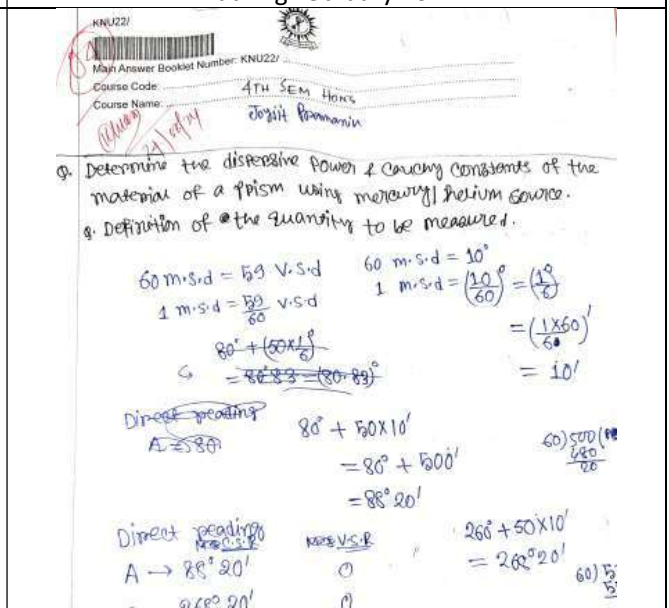 KNU22/
84
Main Answer Booklet Number: KNU22/
Course Code:
4TH SEM HONS
Course Name:
Joyjit Pramanik
Q. Determine the dispersive Power & Cauchy Constants of the
material of a Prism using mercury/helium source.
Q. Definition of the quantity to be measured.
60 m.s.d = 59 V.S.d
1 m.s.d = 59/60 V.S.d
60 m.s.d = 10°
1 m.s.d = (10/60)° = (1/6)°
= (1×60/60)'
= 10'
80° + (50×1/6)°
= 80°83 = (80.83)°
Direct reading
A => 80°
80° + 50×10'
= 80° + 500'
= 88° 20'
60)500(
480
20
Direct reading
C.S.R
V.S.R
A → 88° 20'
0
268° 20'
0
260° + 50×10'
= 268° 20'
60)5